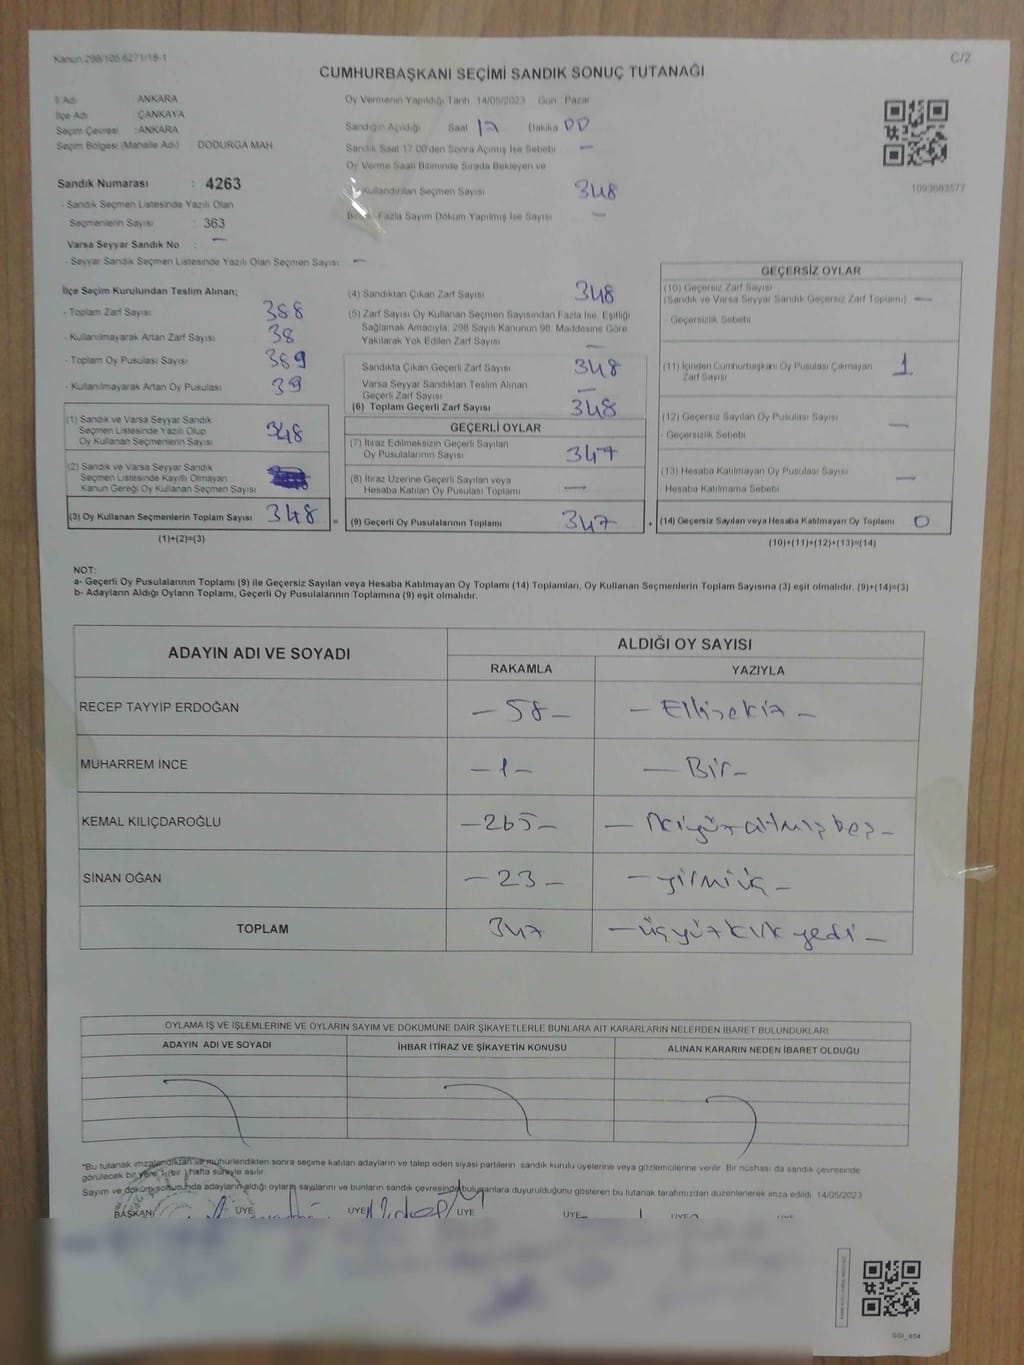 Kanun:298/105,6271/18-1
C/2
CUMHURBAŞKANI SEÇİMİ SANDIK SONUÇ TUTANAĞI
İl Adı ANKARA
İlçe Adı ÇANKAYA
Seçim Çevresi : ANKARA
Seçim Bölgesi (Mahalle Adı) DODURGA MAH
Sandık Numarası : 4263
- Sandık Seçmen Listesinde Yazılı Olan
Seçmenlerin Sayısı : 363
Varsa Seyyar Sandık No : —
- Seyyar Sandık Seçmen Listesinde Yazılı Olan Seçmen Sayısı —
Oy Vermenin Yapıldığı Tarih 14/05/2023 Gün Pazar
Sandığın Açıldığı Saat 17 Dakika 00
Sandık Saat 17:00'den Sonra Açılmış İse Sebebi —
Oy Verme Saati Bitiminde Sırada Bekleyen ve
Kullandırılan Seçmen Sayısı 348
Fazla Sayım Döküm Yapılmış İse Sayısı —
1093683577
İlçe Seçim Kurulundan Teslim Alınan;
- Toplam Zarf Sayısı 388
- Kullanılmayarak Artan Zarf Sayısı 38
- Toplam Oy Pusulası Sayısı 389
- Kullanılmayarak Artan Oy Pusulası 39
(1) Sandık ve Varsa Seyyar Sandık
Seçmen Listesinde Yazılı Olup
Oy Kullanan Seçmenlerin Sayısı 348
(2) Sandık ve Varsa Seyyar Sandık
Seçmen Listesinde Kayıtlı Olmayan
Kanun Gereği Oy Kullanan Seçmen Sayısı
(3) Oy Kullanan Seçmenlerin Toplam Sayısı 348 =
(1)+(2)=(3)
(4) Sandıktan Çıkan Zarf Sayısı 348
(5) Zarf Sayısı Oy Kullanan Seçmen Sayısından Fazla İse, Eşitliği
Sağlamak Amacıyla, 298 Sayılı Kanunun 98. Maddesine Göre
Yakılarak Yok Edilen Zarf Sayısı —
Sandıkta Çıkan Geçerli Zarf Sayısı 348
Varsa Seyyar Sandıktan Teslim Alınan
Geçerli Zarf Sayısı —
(6) Toplam Geçerli Zarf Sayısı 348
GEÇERLİ OYLAR
(7) İtiraz Edilmeksizin Geçerli Sayılan
Oy Pusulalarının Sayısı 347
(8) İtiraz Üzerine Geçerli Sayılan veya
Hesaba Katılan Oy Pusulası Toplamı —
(9) Geçerli Oy Pusulalarının Toplamı 347 +
GEÇERSİZ OYLAR
(10) Geçersiz Zarf Sayısı
(Sandık ve Varsa Seyyar Sandık Geçersiz Zarf Toplamı) —
- Geçersizlik Sebebi
(11) İçinden Cumhurbaşkanı Oy Pusulası Çıkmayan
Zarf Sayısı 1
(12) Geçersiz Sayılan Oy Pusulası Sayısı —
- Geçersizlik Sebebi
(13) Hesaba Katılmayan Oy Pusulası Sayısı —
Hesaba Katılmama Sebebi
(14) Geçersiz Sayılan veya Hesaba Katılmayan Oy Toplamı 0
(10)+(11)+(12)+(13)=(14)
NOT:
a- Geçerli Oy Pusulalarının Toplamı (9) ile Geçersiz Sayılan veya Hesaba Katılmayan Oy Toplamı (14) Toplamları, Oy Kullanan Seçmenlerin Toplam Sayısına (3) eşit olmalıdır. (9)+(14)=(3)
b- Adayların Aldığı Oyların Toplamı, Geçerli Oy Pusulalarının Toplamına (9) eşit olmalıdır.
ADAYIN ADI VE SOYADI ALDIĞI OY SAYISI
RAKAMLA YAZIYLA
RECEP TAYYİP ERDOĞAN —58— —Ellisekiz—
MUHARREM İNCE —1— —Bir—
KEMAL KILIÇDAROĞLU —265— —İkiyüzaltmışbeş—
SİNAN OĞAN —23— —yirmiüç—
TOPLAM 347 —üçyüzkırkyedi—
OYLAMA İŞ VE İŞLEMLERİNE VE OYLARIN SAYIM VE DÖKÜMÜNE DAİR ŞİKAYETLERLE BUNLARA AİT KARARLARIN NELERDEN İBARET BULUNDUKLARI
ADAYIN ADI VE SOYADI İHBAR İTİRAZ VE ŞİKAYETİN KONUSU ALINAN KARARIN NEDEN İBARET OLDUĞU
*Bu tutanak imzalandıktan ve mühürlendikten sonra seçime katılan adayların ve talep eden siyasi partilerin sandık kurulu üyelerine veya gözlemcilerine verilir. Bir nüshası da sandık çevresinde
görülecek bir yere 1 (bir) hafta süreyle asılır.
Sayım ve döküm sonucunda adayların aldığı oyların sayılarını ve bunların sandık çevresinde bulunanlara duyurulduğunu gösteren bu tutanak tarafımızdan düzenlenerek imza edildi. 14/05/2023
BAŞKAN ÜYE ÜYE ÜYE ÜYE ÜYE ÜYE